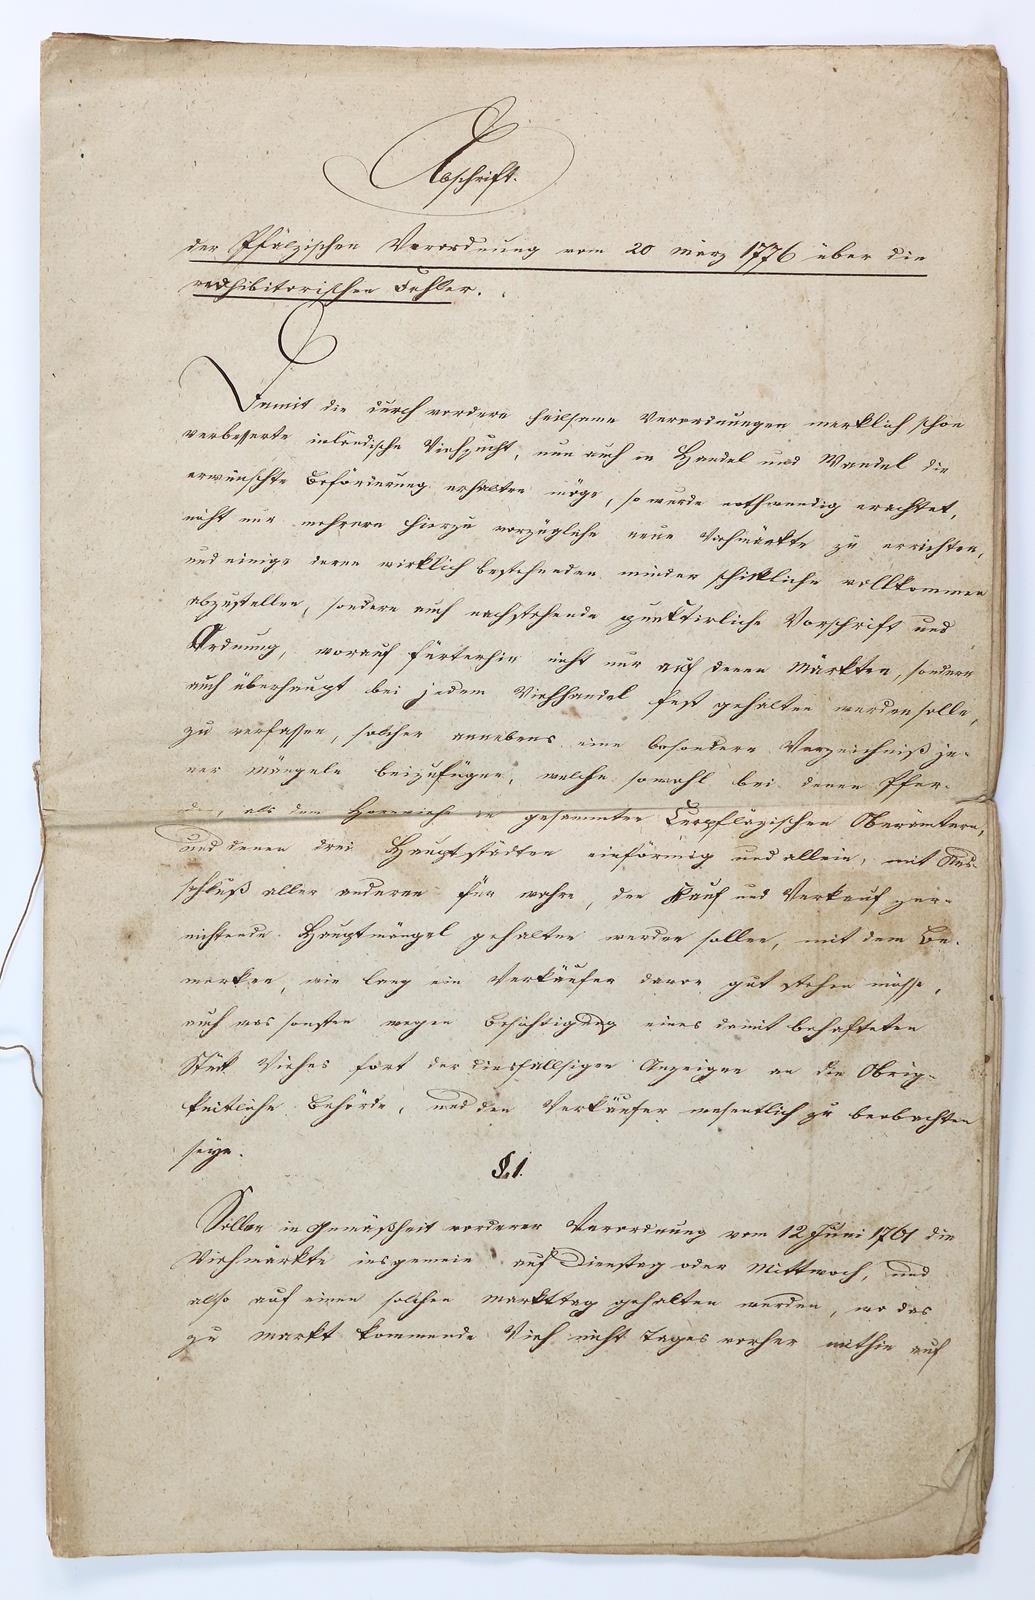 Abschrift.
der Pfälzischen Verordnung vom 20 März 1776 über die
redhibitorischen Fehler.
Damit die durch vordere heilsame Verordnungen merklich schon
verbesserte inländische Viehzucht, nun auch in Handel und Wandel die
erwünschte Beförderung erhalten möge, so wurde nothwendig erachtet,
nicht nur mehrere hierzu vorzügliche neue Viehmärkte zu errichten,
und einige deren wirklich bestehenden minder schickliche vollkommen
abzustellen, sondern auch nachstehende punktirliche Vorschrift und
Ordnung, worauf fürterhin nicht nur auf denen Märkten, sondern
auch überhaupt bei jedem Viehhandel fest gehalten werden solle,
zu verfassen, solcher annebens eine besondere Verzeichniß je-
ner Mängeln beizufügen, welche sowohl bei denen Pfer-
den, als dem Hornviehe in gesammten Curpfläzischen Oberämtern,
und denen drei Hauptstädten einförmig und allein, mit Aus-
schluß aller anderen für wahre, den Kauf und Verkauf zer-
nichtende Hauptmängel gehalten werden sollen, mit dem Be-
merken, wie lang ein Verkäufer davor gut stehen müsse,
auch was sonsten wegen Besichtigung eines damit behafteten
Stück Viehes fort der diesfallsigen Anzeigen an die Obrig-
keitliche Behörde, und den Verkäufer wesentlich zu beobachten
seye.
§. 1.
Sollen in Gemäßheit vorderer Verordnung vom 12 Juni 1761 die
Viehmärkte insgemein auf Dienstag oder Mittwoch, und
also auf einen solchen Markttag gehalten werden, wo das
zu Markt kommende Vieh nicht Tages vorher mithin auf